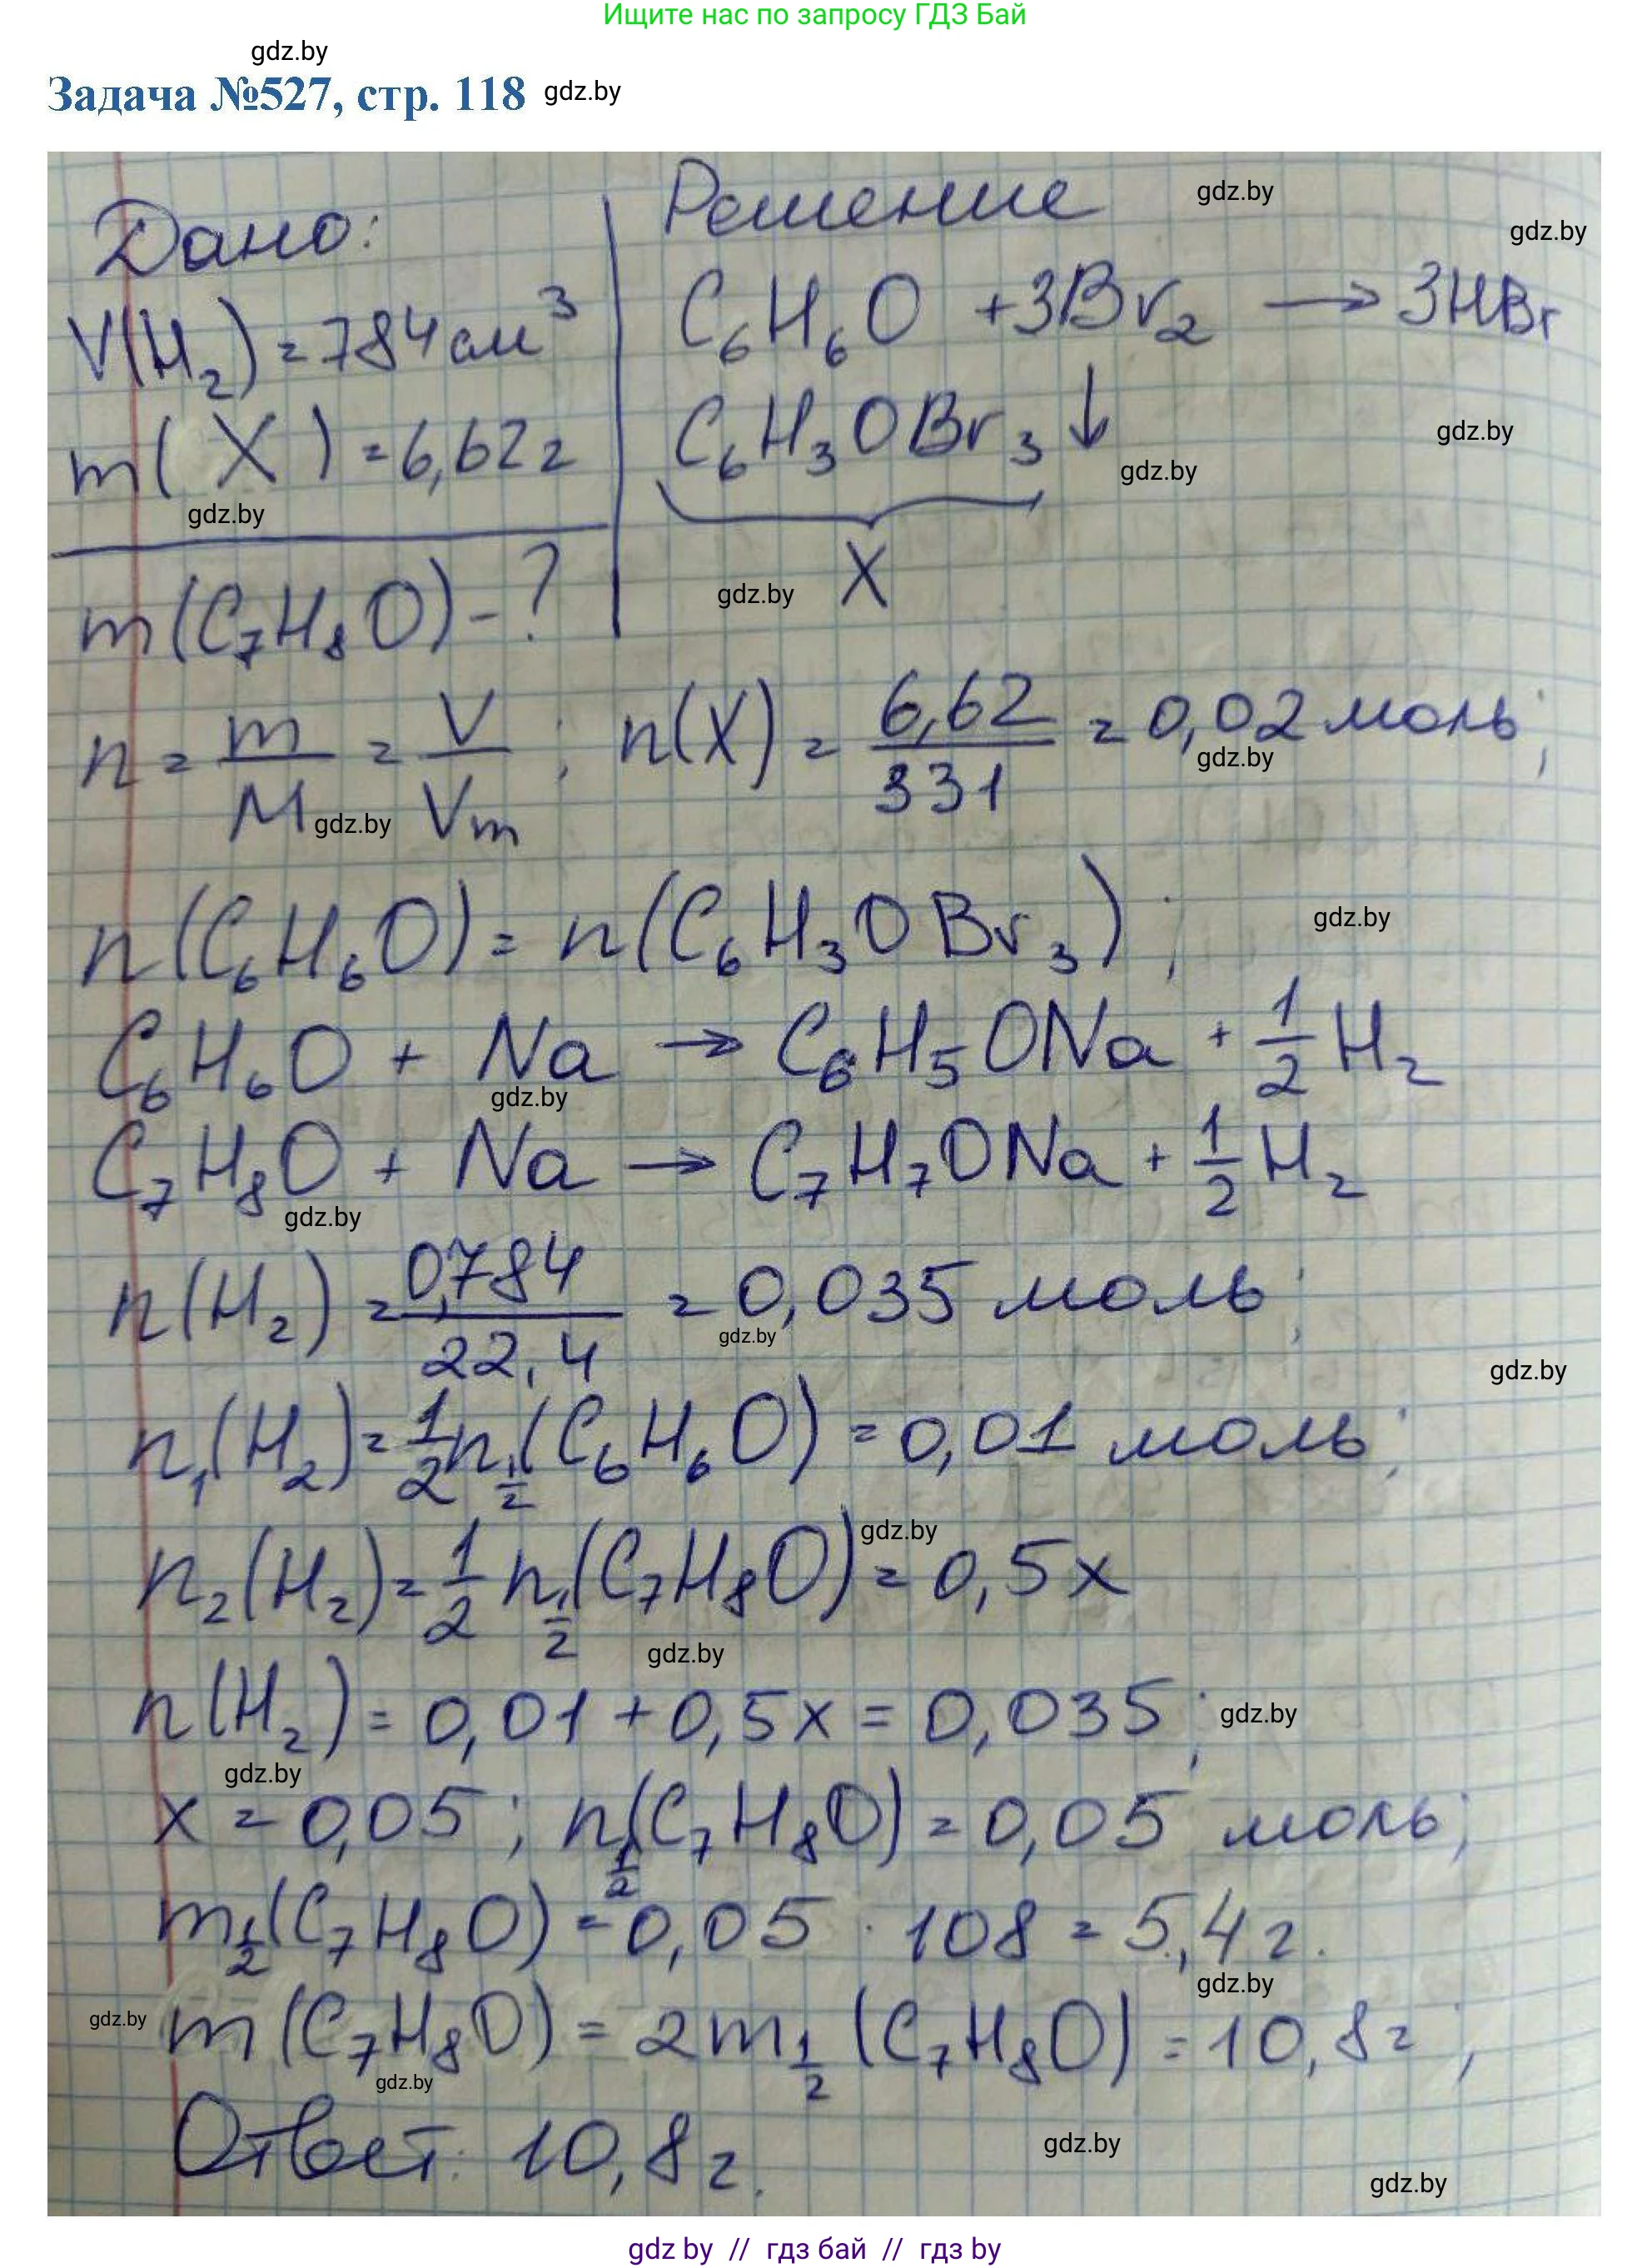 Ищите нас по запросу ГДЗ Бай
gdz.by
Задача №527, стр. 118 gdz.by
Дано:
Решение
gdz.by
gdz.by
V(H₂) = 784 см³
C₆H₆O + 3Br₂ → 3HBr
m(X) = 6,62 г
C₆H₃OBr₃ ↓
gdz.by
gdz.by
gdz.by
X
gdz.by
m(C₇H₈O) - ?
n = m/M = V/Vm ; n(X) = 6,62/331 = 0,02 моль;
gdz.by
gdz.by
n(C₆H₆O) = n(C₆H₃OBr₃) ;
gdz.by
C₆H₆O + Na → C₆H₅ONa + 1/2 H₂
gdz.by
C₇H₈O + Na → C₇H₇ONa + 1/2 H₂
gdz.by
n(H₂) = 0,784/22,4 = 0,035 моль;
gdz.by
gdz.by
n₁(H₂) = 1/2 n_1/2(C₆H₆O) = 0,01 моль;
gdz.by
n₂(H₂) = 1/2 n_1/2(C₇H₈O) = 0,5x
gdz.by
n(H₂) = 0,01 + 0,5x = 0,035;
gdz.by
gdz.by
x = 0,05 ; n_1/2(C₇H₈O) = 0,05 моль;
m_1/2(C₇H₈O) = 0,05 · 108 = 5,4 г.
gdz.by
gdz.by
m(C₇H₈O) = 2m_1/2(C₇H₈O) = 10,8 г;
gdz.by
Ответ: 10,8 г.
gdz.by
gdz.by
gdz by // гдз бай // гдз by